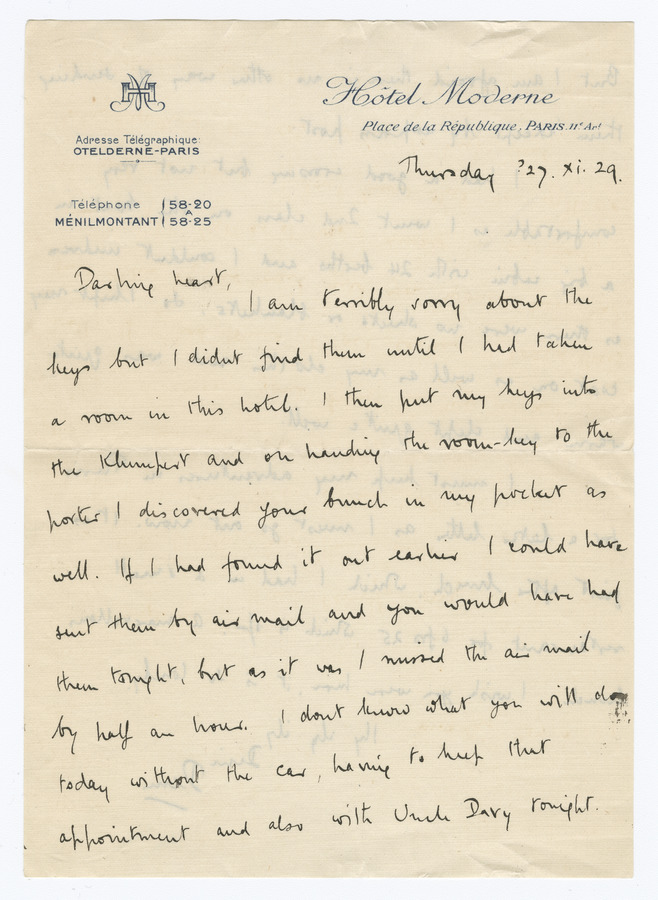 Hôtel Moderne
Place de la République, PARIS. 11e Arrt
Adresse Télégraphique:
OTELDERNE-PARIS
Téléphone 58-20
A
MÉNILMONTANT 58-25
Thursday ?27. XI. 29.
Darling heart,
I am terribly sorry about the
keys but I didnt find them until I had taken
a room in this hotel. I then put my keys into
the and on handing the room-key to the
porter I discovered your bunch in my pocket as
well. If I had found it out earlier I could have
sent them by air mail and you would have had
them tonight, but as it was I missed the air mail
by half an hour. I dont know what you will do
today without the car, having to keep that
appointment and also with Uncle Davy tonight.